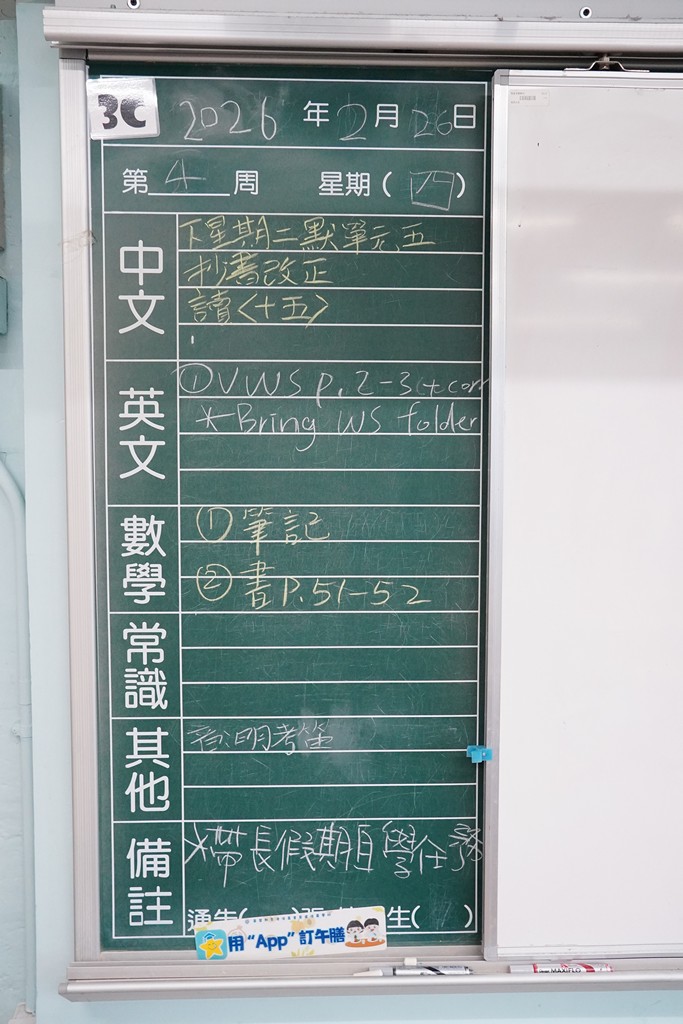 3C 2026 年 2 月 26 日
第 4 周 星期 ( 四 )
中文
下星期二默單元五
抄書改正
讀〈十五〉
英文
① VWS p. 2-3 (+ corr
* Bring WS folder
數學
① 筆記
② 書 P.51-52
常識
其他
音:明考笛
備註
*帶長假期自學任務
通告( 生( )
用 "App" 訂午膳
MAXIFLO